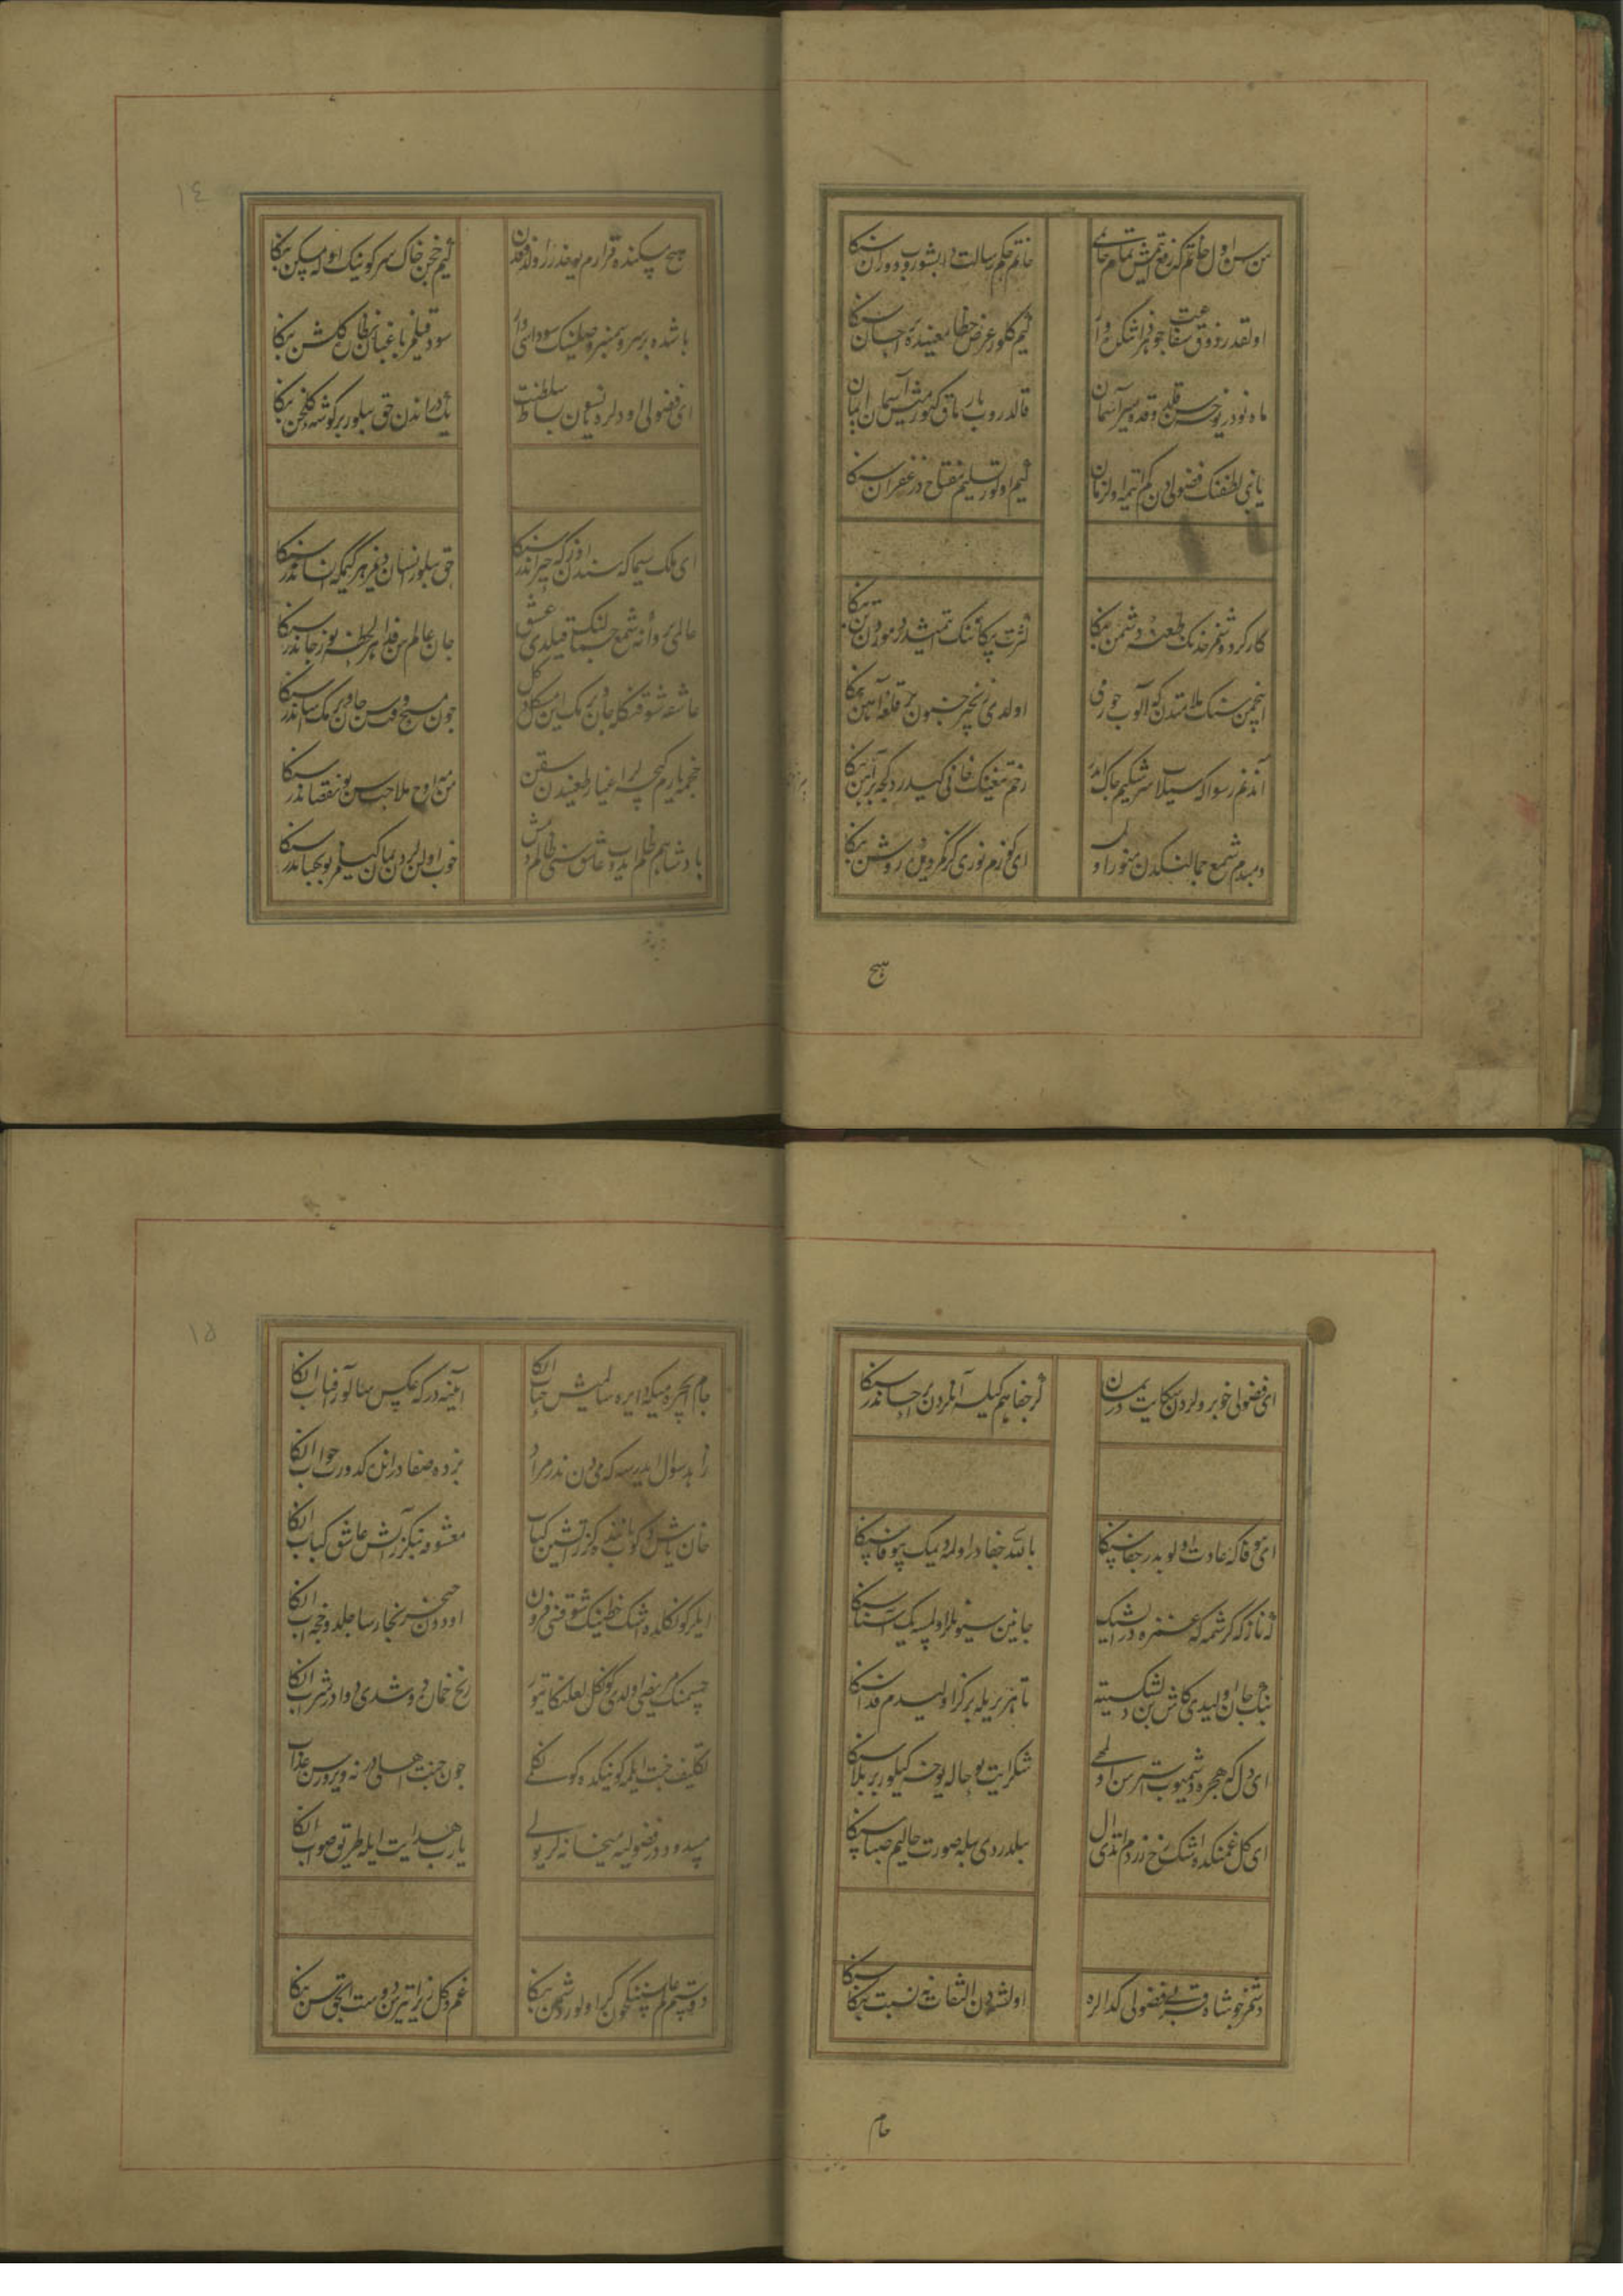 سن سن اول خاتم که رفع ایتمش تمامی خاتمی
خاتم حکم رسالت در بشور و دوران سنکا
اولقدر ذوق شفاعت جوهر ذاتنکده وار
کیم کلور عرض خطا معنیده بر احسان سنکا
ماه نودر یوخسه قلدوقده سیر آسمان
قالدروب بارماق کتورمش آسمان ایمان سنکا
یا نبی لطفنک فضولیدن کم ایتمه اول زمان
کیم اولور تسلیم مفتاح در غفران سنکا
کارکر دوشمز خدنک طعنه دشمن بنکا
کثرت پیکاننک ایتمشدر دمردن تن بنکا
ایچمن سنک ملامتدن که آلوب چوره می
اولدی زنجیر جنون بر قلعه آهن بنکا
آنده غم رسوا که سیلاب سرشکیم چاک ایدر
زخم تیغنک قانی کیدردکجه پیراهن بنکا
دمبدم شمع جمالنکدن منور اولمسه
ای کوزم نوری کرکمز دیده روشن بنکا
هیچ
۱٤
هیچ مسکنده قرارم یوقدر اول ذوقدن
کیم خجن خاک سر کوینک اوله مسکن بنکا
باشده بر سرو سمنبر وصلینک سوداسی وار
سود قیلمز باغبان نظاره کلشن بنکا
ای فضولی اودلره یانسون بساط سلطنت
یکدر اندن حق بیلور بر کوشه کلخن بنکا
ای ملک سیما که سندن اوزکه حیراندر سنکا
حق بیلور انسان دیمز هر کیم که انساندر سنکا
عالمی پروانه شمع جمالنک قیلدی عشق
جان عالم سن فدا هر لحظه یوز جاندر سنکا
عاشقه شوقنکله جان ویرمک ایمن مشکل دکل
چون مسیح وقت سن جان ویرمک آساندر سنکا
چخمه یارم کیجه لر اغیار طعنیندن سقن
سن مه اوج ملاحت سن بو نقصاندر سنکا
پادشاهم ظلم ایدوب عاشق سنی ظالم دمش
خوب اولنلردن یمان کیلمز بو بهتاندر سنکا
ای فضولی خوبرولردن شکایت در یمان
هر جفا هم کیلسه آنلردن بر احساندر سنکا
ای بیوفا که عادت اولوبدر جفا سنکا
بالله جفادر اولمه دیمک بیوفا سنکا
که ناز که کرشمه که عشوه در ایشک
جانین سیون بلا اولمسه یک آشنا سنکا
بنک جان اولیدی کاش بن دلشکسته ده
تا هر بریله بر کز اولیدم فدا سنکا
ای دل که هجره دوشمیوب ایسترسن اولمغی
شکر ایت بو حاله یوخسه کیلور بر بلا سنکا
ای کل غمنکده اشک رخ زردم ایتدی آل
بیلدردی بیله صورت حالیم صبا سنکا
دوشمز چو شاه قربی فضولی کدالره
اول شهدن التفات نه نسبت بنکا سنکا
جام
۱٥
جام ایچره میکه دایره سالمیش حباب انکا
آیینه در که عکس سالور آفتاب انکا
زاهد سوال ایدرسه که می دن ندر مراد
بزده صفادر انلره کدورت جواب انکا
قان یاش توکوب یانمقده کوز آتشین کباب
معشوقه بنکزر آتش عاشق کباب انکا
ایلر کوکلده اشک خطینک شوقنی فزون
اودون خیزر بخار ساچلدوقجه آب انکا
چشمنک مریضی اولدی کوکل لعلنکا تیور
رنج خماره دوشدی دوادر شراب انکا
تکلیف جنت ایلمه کوینکده کوکلمه
چون جنت اهلی در نه ویرورسن عذاب انکا
مسدود در فضولیه میخانه لر یولی
یارب هدایت ایله طریق صواب انکا
دوستم عالم سننکچون کر اولور دشمن بنکا
غم دکل زیرا یتر سن دوست انجق سن بنکا